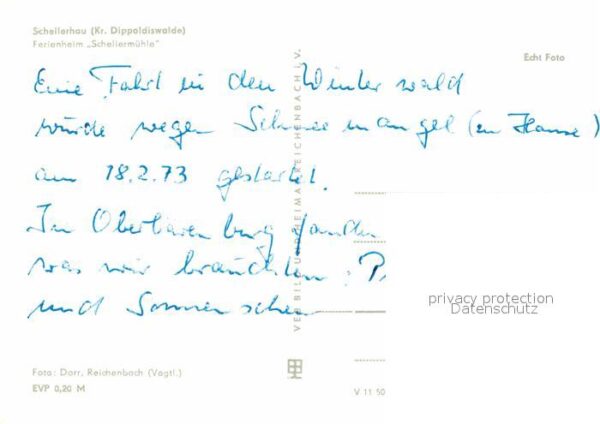 Schellerhau (Kr. Dippoldiswalde)
Ferienheim „Schellermühle"
Echt Foto
Eine Fahrt in den Winterwald
wurde wegen Schneemangel (zu Hause)
am 18.2.73 gestartet.
In Oberbärenburg fanden
was wir brauchten: P
und Sonnenschein
VEB BILD UND HEIMAT REICHENBACH I. V.
privacy protection
Datenschutz
Foto: Darr, Reichenbach (Vogtl.)
EVP 0,20 M
V 11 50